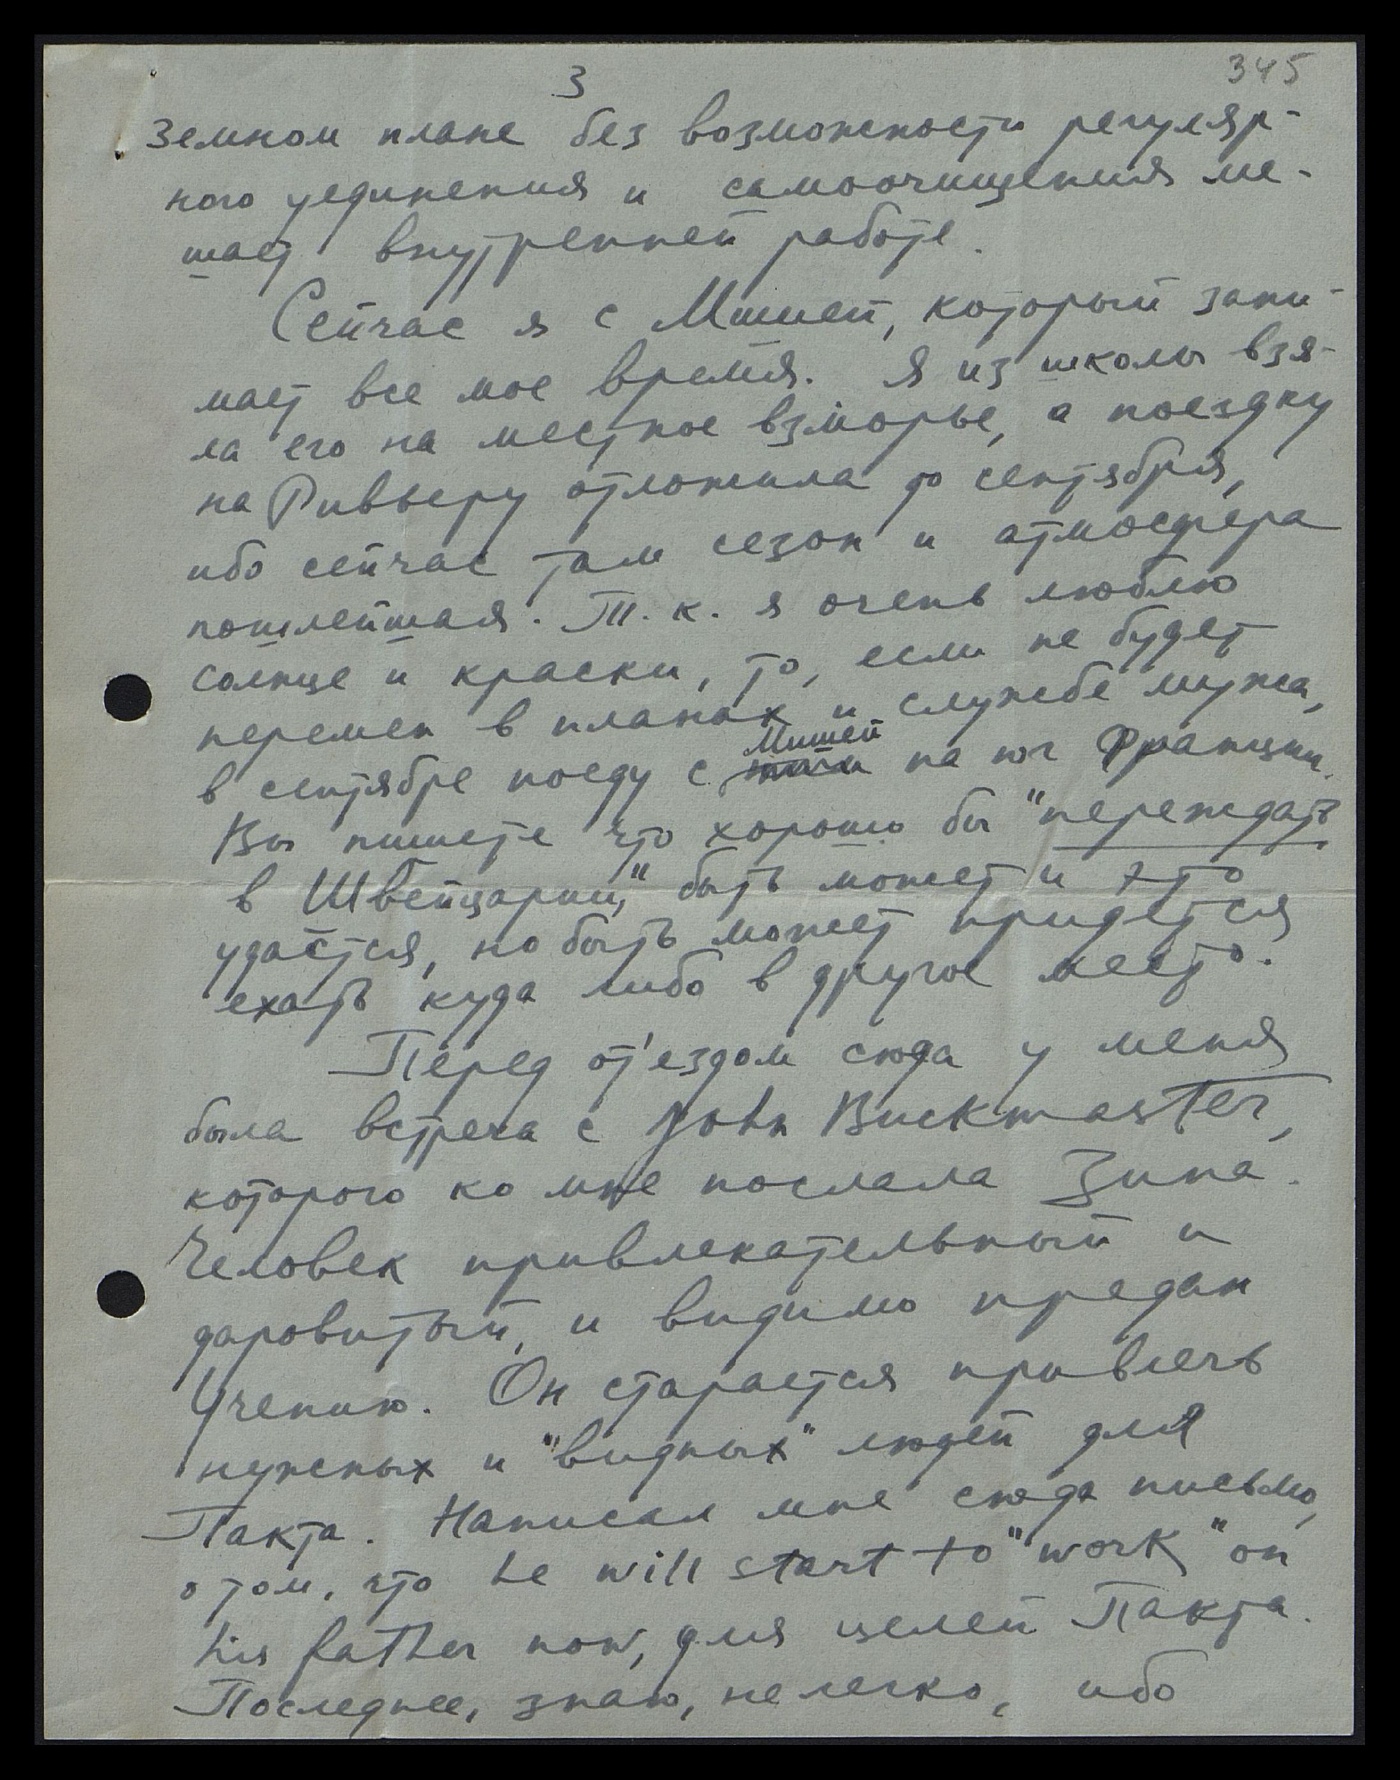 3
345
земном плане без возможности регуляр-
ного уединения и самоочищения ме-
шает внутренней работе.
Сейчас я с Мишей, который зани-
мает все мое время. Я из школы взя-
ла его на местное взморье, а поездку
на Ривьеру отложила до сентября,
ибо сейчас там сезон и атмосфера
пошлейшая. Т. к. я очень люблю
солнце и краски, то, если не будет
перемен в планах и службе мужа,
Мишей
в сентябре поеду с на юг Франции.
Вы пишете что хорошо бы "переждать
в Швейцарии," быть может и это
удастся, но быть может придется
ехать куда либо в другое место.
Перед от'ездом сюда у меня
была встреча с John Buckmaster,
которого ко мне послала Зина.
Человек привлекательный и
даровитый, и видимо предан
Учению. Он старается привлечь
нужных и "видных" людей для
Пакта. Написал мне сюда письмо,
о том, что he will start to "work" on
his father now, для целей Пакта.
Последнее, знаю, не легко, ибо